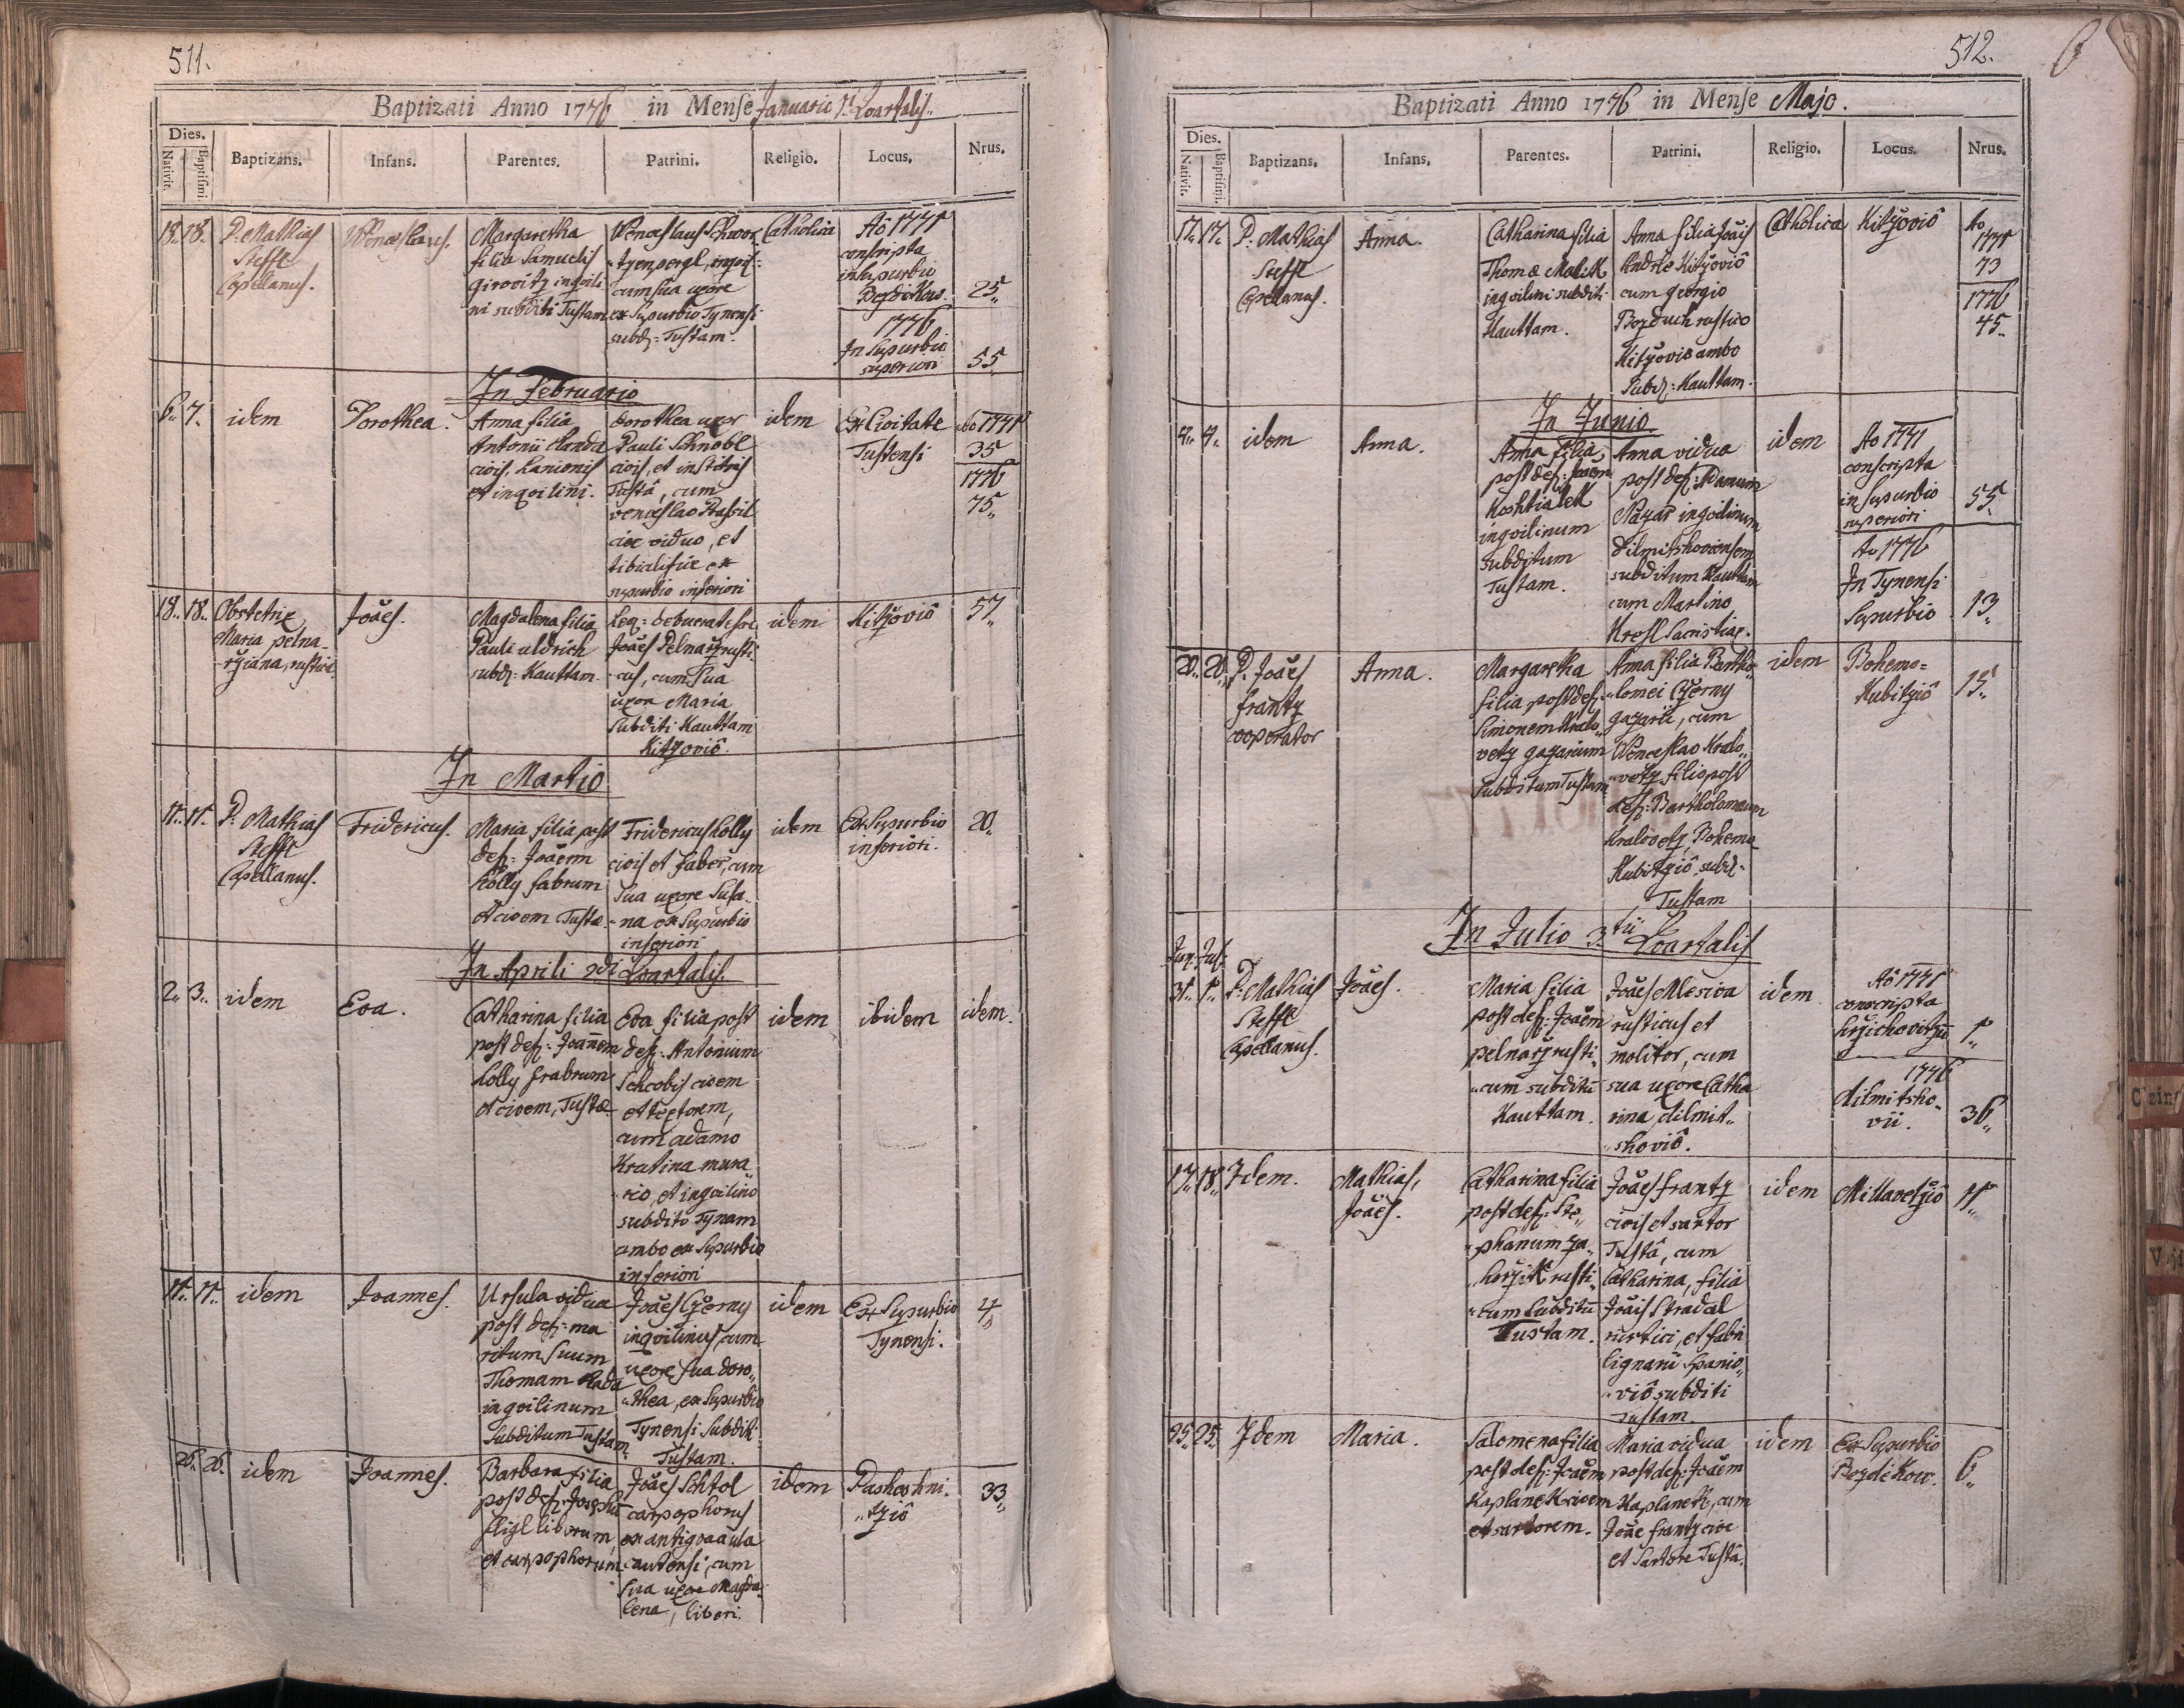 511.
Baptizati Anno 1776 in Mense Januario 1mi Quartalis.
Dies.
Nativit.
Baptismi
Baptizans.
Infans.
Parentes.
Patrini.
Religio.
Locus.
Nrus.
18. 18.
P. Mathias
Steffl
Capellanus.
Wenceslaus.
Margaretha
filia Samuelis
inquili
ni subditi Tustam
Wenceslaus
cum sua uxore
ex Supurbio Tynensi
subd: Tustam.
Catholica
Aô 1771
conscripta
in Supurbio
Bezdiekow.
25
1776
In Supurbio
superiori
55
In Februario
6. 7.
idem
Dorothea.
Anna filia
Antonii Hrada
civis, Lanionis
et inqoilini.
Dorothea uxor
Pauli Schnobl
civis, et institoris
Tustâ, cum
venceslao
viduo, et
ex
supurbio inferiori
idem
Ex Civitate
Tustensi
Aô 1771
35
1776
75
18. 18.
Obstetrix
Maria pelna-
ržiana, rustica
Joães.
Magdalena filia
Pauli uldrich
subd: Kauttam.
Joães Pelnarž rusti
cus, cum Sua
uxore Maria
Subditi Kauttam
Kitzoviô.
idem
Kitzoviô
57
In Martio
11. 11.
P. Mathias
Steffl
Capellanus.
Fridericus.
Maria filia post
def: Joãem
Kolly fabrum
et civem Tustæ.
Fridericus Kolly
civis et faber, cum
Sua uxore Susa-
na ex Supurbio
inferiori
idem
Ex Supurbio
inferiori.
20
In Aprili 2di Quartalis.
2. 3.
idem
Eva.
Catharina filia
post def: Joañem
Kolly frabrum
et civem, Tustæ
Eva filia post
def: Antonium
Schcobis civem
et textorem,
cum adamo
Kratina mura
rio, et inqoilino
subdito Tynam
ambo ex Supurbio
inferiori
idem
ibidem
idem.
11. 11.
idem
Joannes.
Ursula vidua
post def: ma
ritum Suum
Thomam Hada
inqoilinum
Subditum Tustam
Joães Czerny
inqoilinus, cum
uxore sua doro
thea, ex Supurbio
Tynensi Subditi
Tustam.
idem
Ex Supurbio
Tynensi.
4
26. 26.
idem
Joannes.
Barbara filia
post def: Josephum
liberum,
et carpophorum
Joães Schtol
carpophorus
ex antiqva aula
cautensi, cum
Sua uxore Magda
lena, liberi.
idem
Paskoshni
tziô
33
512.
Baptizati Anno 1776 in Mense Majo.
Dies.
Nativit.
Baptismi
Baptizans.
Infans.
Parentes.
Patrini.
Religio.
Locus.
Nrus.
17. 17.
P. Mathias
Steffl
Capellanus.
Anna.
Catharina filia
Thomæ Malik
inqoilini subditi
Kauttam.
Anna filia Joãis
Andrle Kitzoviô
cum georgio
Bozduch rustico
Kitzoviô ambo
Subd: Kauttam.
Catholica
Kitzoviô
Ao
1771
73
1776
45.
In Junio
4. 4.
idem
Anna.
Anna filia
post def: Joaem
Koshtialek
inqoilinum
subditum
Tustam.
Anna vidua
post def: Adamum
Nazar inqoilinum
dilmitshoviensem
subditum Kauttam
cum Martino
Krossl Sacristiae.
idem
Ao 1771
conscripta
in Supurbio
superiori
55
Ao 1776
In Tynensi
Supurbio
13
20. 20.
P. Joães
frantz
cooperator
Anna.
Margaretha
filia, post def:
Simonem Kralo
vetz gazarium
Subditum Tustam
Anna filia Bartho
lomei Czerny
gazarii, cum
Wenceslao Kralo
vetz filio post
def: Bartholomæum
Kralovetz Bohemo
Kubitziô, subd:
Tustam
idem
Bohemo=
Kubitziô
15
In Julio 3tii Quartalis
Jun. Jul.
31. 1.
P. Mathias
Steffl
Capellanus.
Joães.
Maria filia
post def: Joaem
pelnarž rusti
cum subditũ
Kauttam.
Joães Mleziva
rusticus et
molitor, cum
sua uxore Catha
rina, dilmit
shoviô.
idem
Aô 1771
conscripta
hržichovitzii
1
1776
dilmitsho
vii.
36
17. 18.
Idem.
Mathias,
Joães.
Catharina filia
post def: Ste
phanum za
horžik rusti
cum Subditũ
Tustam.
Joães frantz
civis et sartor
Tustâ, cum
Catharina, filia
Joãis Stradal
rustici, et fabri
lignarii Spanio
viô subditi
Tustam.
idem
Millavetziô
11
25. 25.
Idem
Maria.
Salomena filia
post def: Joaẽm
Kaplanek civem
et sartorem.
Maria vidua
post def: Joãem
Kaplanek, cum
Joãe frantz cive
et Sartore Tustâ.
idem
Ex Supurbio
Bezdiekow.
6